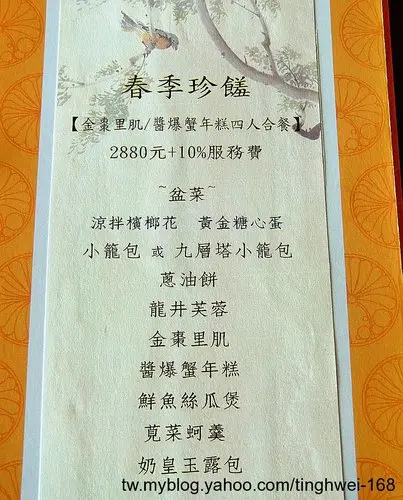 春季珍饈
【金棗里肌/醬爆蟹年糕四人合餐】
2880元+10%服務費
~盆菜~
涼拌檳榔花 黃金糖心蛋
小籠包 或 九層塔小籠包
蔥油餅
龍井芙蓉
金棗里肌
醬爆蟹年糕
鮮魚絲瓜煲
莧菜蚵羹
奶皇玉露包
tw.myblog.yahoo.com/tinghwei-168